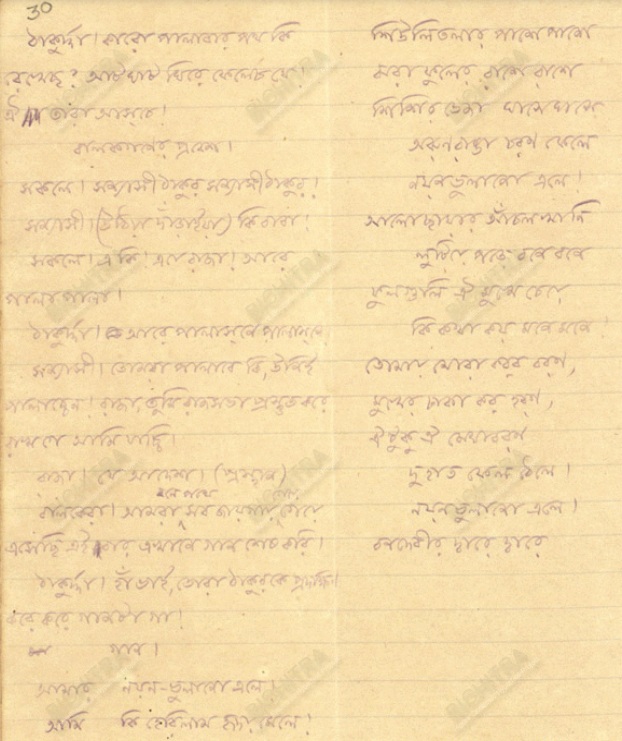 30
ঠাকুর্দ্দা। কারো পালাবার পথ কি
রেখেছ? আটঘাট ঘিরে ফেলেছ যে!
ঐ তারা আসচে!
বালকগণের প্রবেশ।
সকলে। সন্ন্যাসী ঠাকুর সন্ন্যাসী ঠাকুর!
সন্ন্যাসী। (উঠিয়া দাঁড়াইয়া) কি বাবা!
সকলে। এ কি! এ যে রাজা! আরে
পালা পালা!
ঠাকুর্দ্দা। আরে পালাসনে পালাসনে
সন্ন্যাসী। তোমরা পালাবে কি, উনিই
পালাচ্ছেন। রাজা, তুমি রাজসভা প্রস্তুত করে
রাখগে আমি যাচ্ছি।
রাজা। যে আদেশ। (প্রস্থান)
বালকেরা। আমরা বনে পথে সব জায়গায় গেয়ে গেয়ে
এসেছি এইবার এখানে গান শেষ করি।
ঠাকুর্দ্দা। হাঁ ভাই, তোরা ঠাকুরকে প্রদক্ষিণ
করে করে গানটা গা!
গান।
আমার নয়ন-ভুলানো এলে!
আমি কি হেরিলাম হৃদয় মেলে!
শিউলিতলার পাশে পাশে
ঝরা ফুলের রাশে রাশে
শিশির ভেজা ঘাসে ঘাসে
অরুণরাঙা চরণ ফেলে
নয়নভুলানো এলে!
আলোছায়ার আঁচলখানি
লুটিয়ে পড়ে বনে বনে
ফুলগুলি ঐ মুখে চেয়ে
কি কথা কয় মনে মনে!
তোমায় মোরা করব বরণ,
মুখের ঢাকা কর হরণ,
ঐটুকু ঐ মেঘাবরণ
দুহাত দিয়ে ফেল ঠেলে।
নয়নভুলানো এলে!
বনদেবীর দ্বারে দ্বারে
BICHITRA